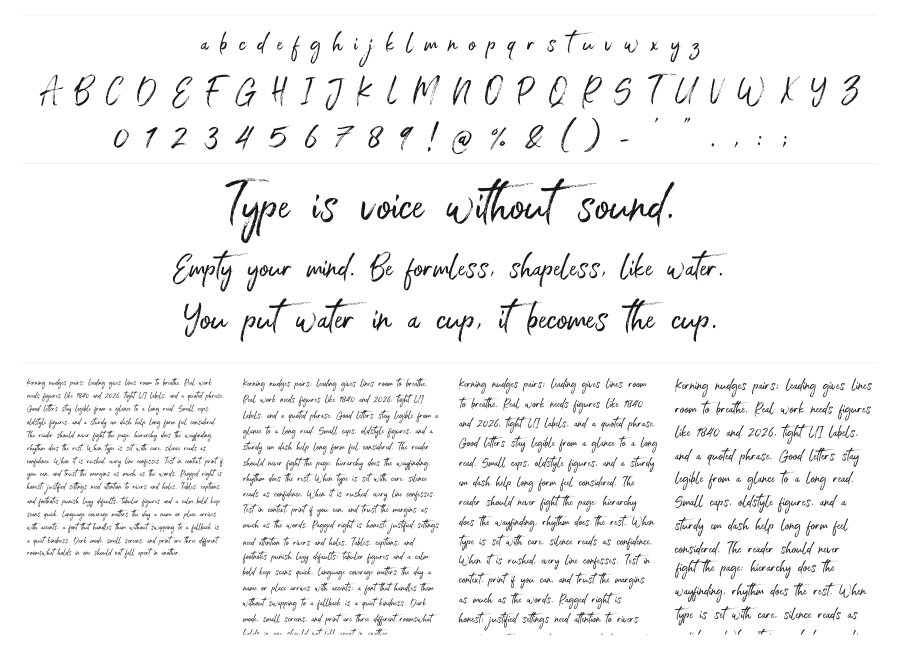 a b c d e f g h i j k l m n o p q r s t u v w x y z
A B C D E F G H I J K L M N O P Q R S T U V W X Y Z
0 1 2 3 4 5 6 7 8 9 ! @ % & ( ) - ' " . , : ;
Type is voice without sound.
Empty your mind. Be formless, shapeless, like water.
You put water in a cup, it becomes the cup.
Kerning nudges pairs; leading gives lines room to breathe. Real work
needs figures like 1840 and 2026, tight UI labels, and a quoted phrase.
Good letters stay legible from a glance to a long read. Small caps,
oldstyle figures, and a sturdy em dash help long form feel considered.
The reader should never fight the page; hierarchy does the wayfinding,
rhythm does the rest. When type is set with care, silence reads as
confidence. When it is rushed, every line confesses. Test in context, print if
you can, and trust the margins as much as the words. Ragged right is
honest; justified settings need attention to rivers and holes. Tables, captions,
and footnotes punish lazy defaults; tabular figures and a calm bold keep
scans quick. Language coverage matters the day a name or place arrives
with accents; a font that handles them without swapping to a fallback is
a quiet kindness. Dark mode, small screens, and print are three different
rooms; what holds in one should not fall apart in another.
Kerning nudges pairs; leading gives lines room to breathe.
Real work needs figures like 1840 and 2026, tight UI
labels, and a quoted phrase. Good letters stay legible from a
glance to a long read. Small caps, oldstyle figures, and a
sturdy em dash help long form feel considered. The reader
should never fight the page; hierarchy does the wayfinding,
rhythm does the rest. When type is set with care, silence
reads as confidence. When it is rushed, every line confesses.
Test in context, print if you can, and trust the margins as
much as the words. Ragged right is honest; justified settings
need attention to rivers and holes. Tables, captions, and
footnotes punish lazy defaults; tabular figures and a calm
bold keep scans quick. Language coverage matters the day a
name or place arrives with accents; a font that handles them
without swapping to a fallback is a quiet kindness. Dark
mode, small screens, and print are three different rooms; what
holds in one should not fall apart in another.
Kerning nudges pairs; leading gives lines room
to breathe. Real work needs figures like 1840
and 2026, tight UI labels, and a quoted phrase.
Good letters stay legible from a glance to a long
read. Small caps, oldstyle figures, and a sturdy
em dash help long form feel considered. The
reader should never fight the page; hierarchy
does the wayfinding, rhythm does the rest. When
type is set with care, silence reads as confidence.
When it is rushed, every line confesses. Test in
context, print if you can, and trust the margins
as much as the words. Ragged right is
honest; justified settings need attention to rivers
Kerning nudges pairs; leading gives lines
room to breathe. Real work needs figures
like 1840 and 2026, tight UI labels,
and a quoted phrase. Good letters stay
legible from a glance to a long read.
Small caps, oldstyle figures, and a
sturdy em dash help long form feel
considered. The reader should never
fight the page; hierarchy does the
wayfinding, rhythm does the rest. When
type is set with care, silence reads as